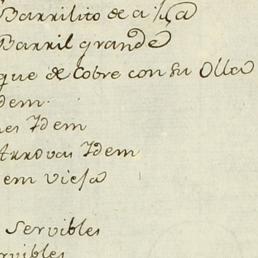 Barrilito de a
Barril grande
que de Cobre con su Olla
dem.
nes Idem
Arrovas Idem
em viesa
Servibles
rvibles